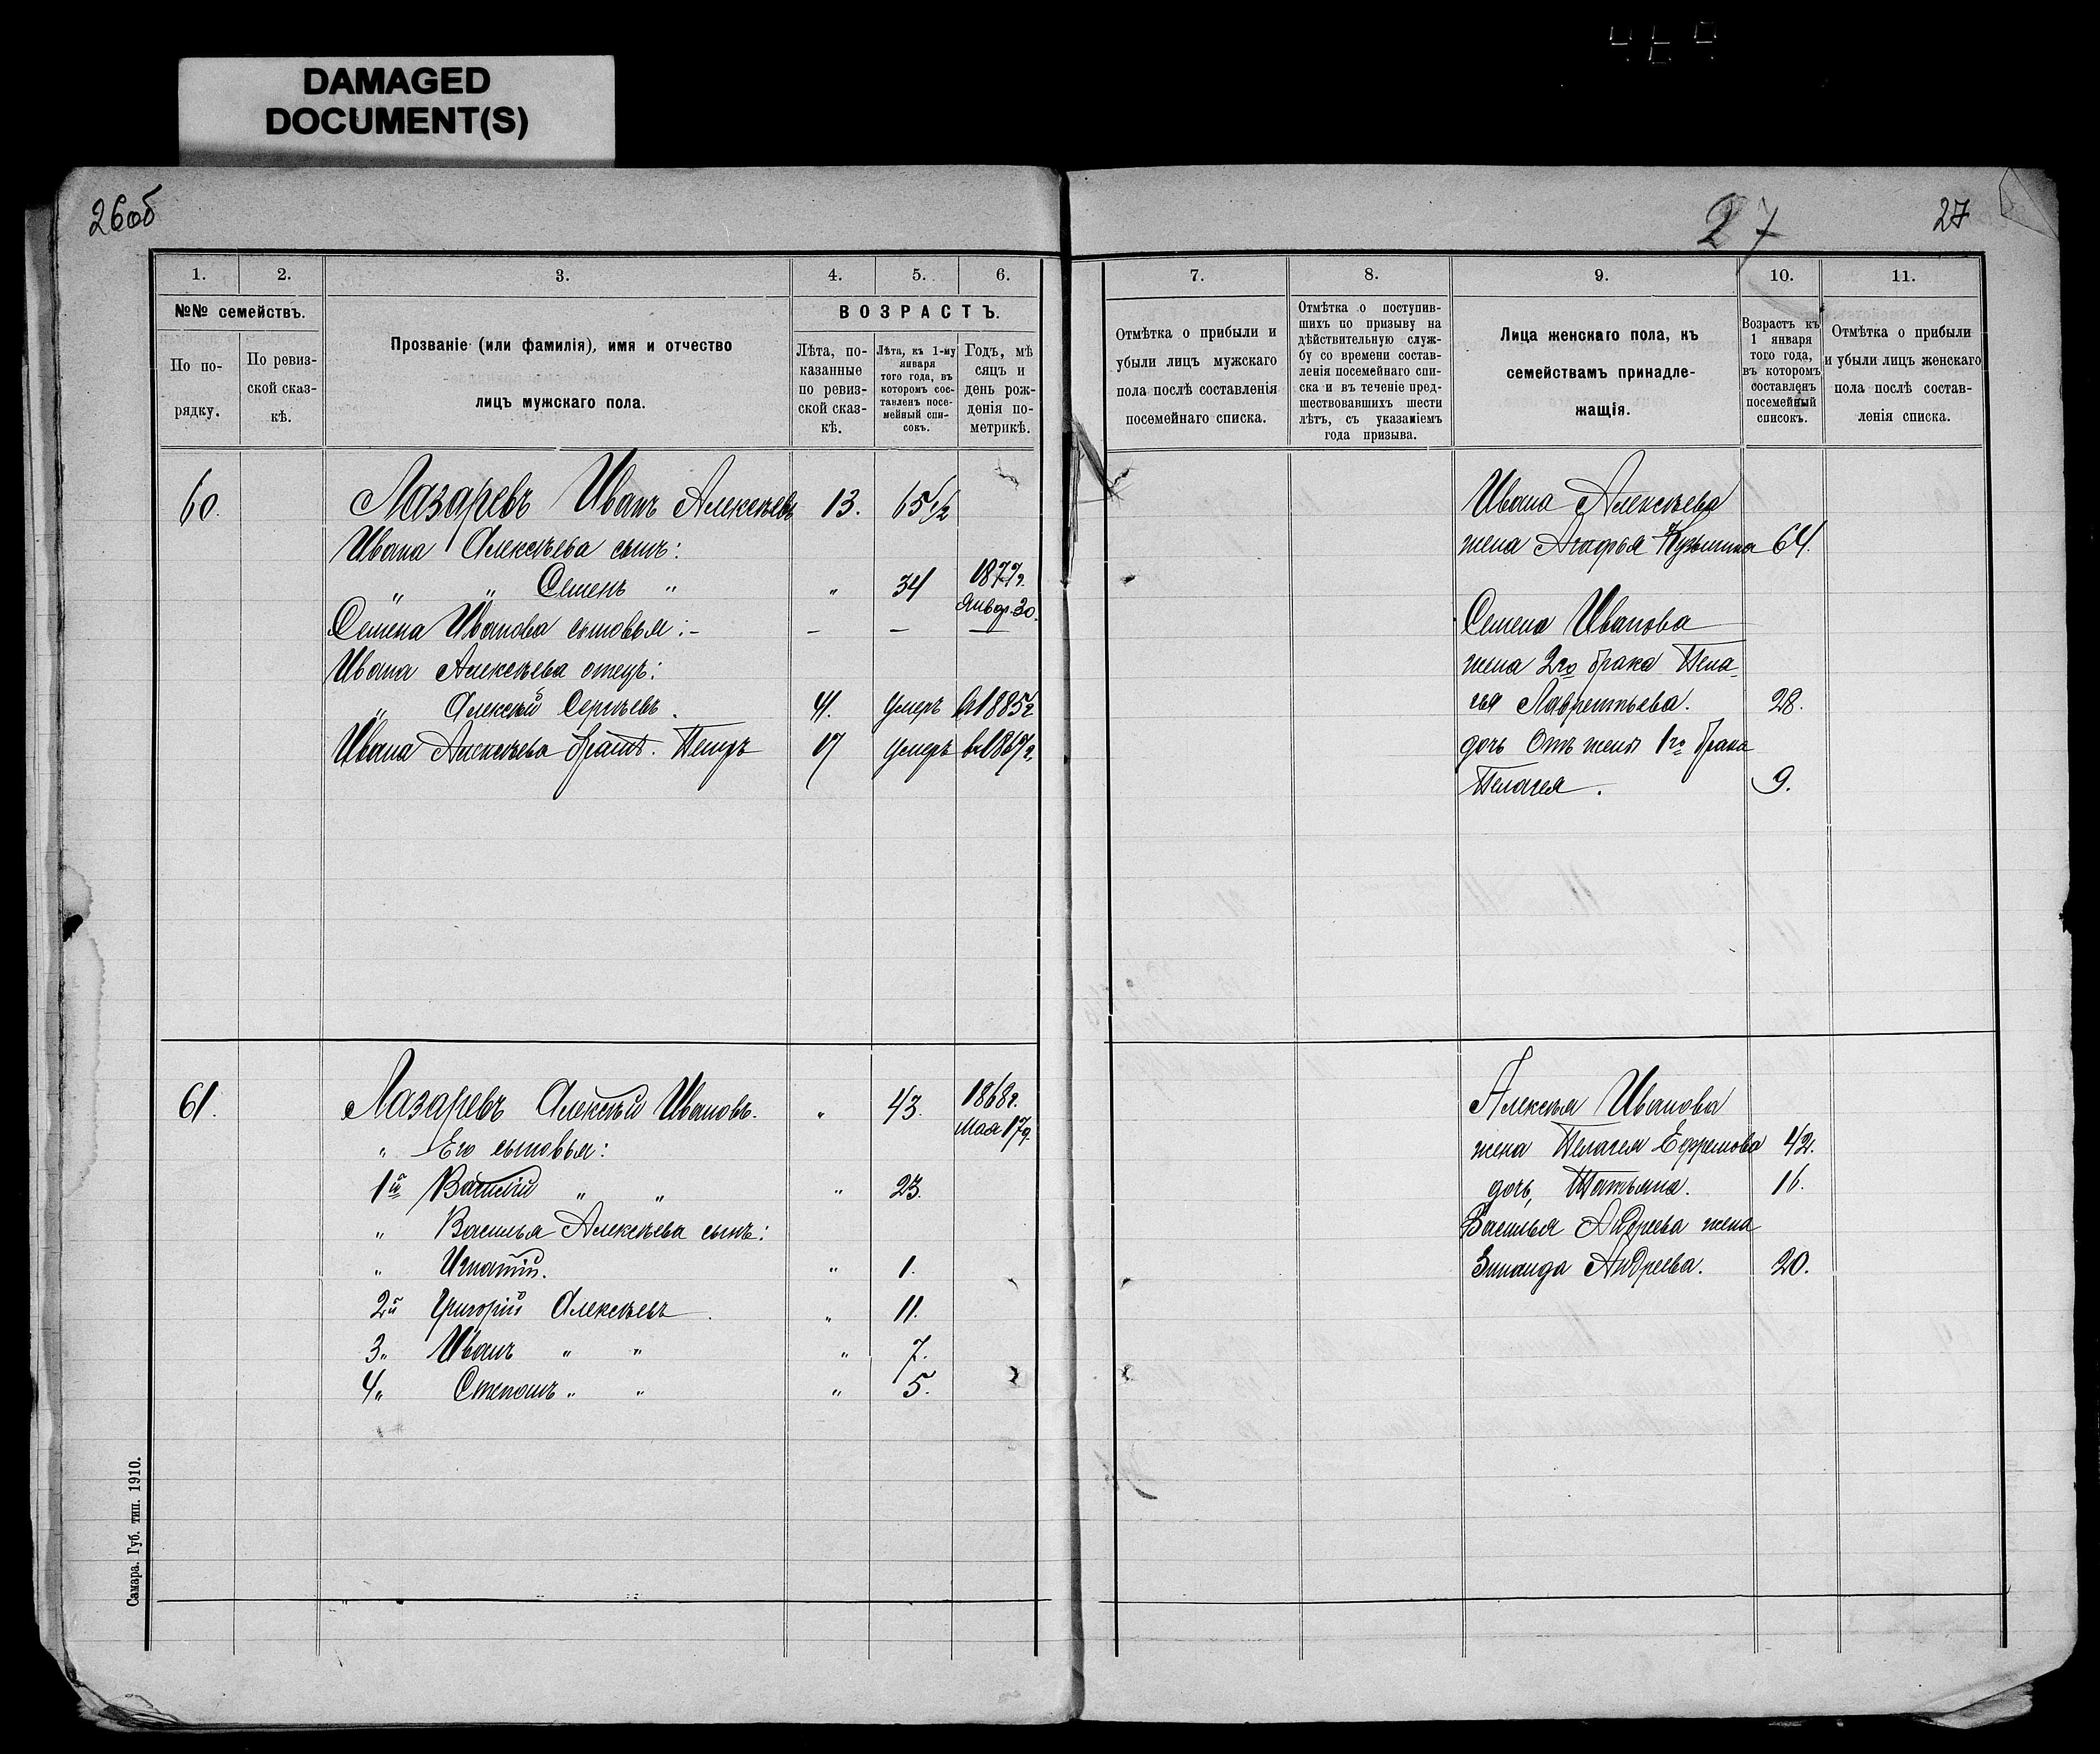 DAMAGED
DOCUMENT(S)
26об
27
27
1.
2.
3.
4.
5.
6.
№№ семействъ.
По по-
рядку.
По ревиз-
ской сказ-
кѣ.
Прозваніе (или фамилія), имя и отчество
лицъ мужскаго пола.
ВОЗРАСТЪ.
Лѣта, по-
казанные
по ревиз-
ской сказ-
кѣ.
Лѣта, къ 1-му
января
того года, въ
которомъ сос-
тавленъ посе-
мейный спи-
сокъ.
Годъ, мѣ
сяцъ и
день рож-
денія по-
метрикѣ.
7.
8.
9.
10.
11.
Отмѣтка о прибыли и
убыли лицъ мужскаго
пола послѣ составленія
посемейнаго списка.
Отмѣтка о поступив-
шихъ по призыву на
дѣйствительную служ-
бу со времени состав-
ленія посемейнаго спи-
ска и въ теченіе пред-
шествовавшихъ шести
лѣтъ, съ указаніемъ
года призыва.
Лица женскаго пола, къ
семействамъ принадле-
жащія.
Возрастъ къ
1 января
того года,
въ которомъ
составленъ
посемейный
списокъ.
Отмѣтка о прибыли
и убыли лицъ женскаго
пола послѣ состав-
ленія списка.
60. Лазаревъ Иванъ Алексѣевъ 13. 65 1/2
Ивана Алексѣева сынъ:
" " Семенъ " " 34 1877г.
Январ. 30.
Семена Иванова сыновья:- – – –
Ивана Алексѣева отецъ:
" Алексѣй Сергѣевъ. 41. умеръ в 1885г
Ивана Алексѣева братъ. Петръ 17 умеръ в 1867г.
Ивана Алексѣева
жена Агафья Кузьмина 64.
Семена Иванова
жена 2го брака Пела-
гея Лаврентьева. 28.
дочь отъ жены 1го брака
Пелагея. 9.
61. Лазаревъ Алексѣй Ивановъ. " 43. 1868г.
Мая 17д.
" Его сыновья:
1й Василій " " " 23.
" Василья Алексѣева сынъ:
" Игнатій. " 1.
2й Григорій Алексѣевъ. " 11.
3" Иванъ " " " 7.
4" Степанъ " " " 5.
Алексѣя Иванова
жена Пелагея Ефремова 42.
дочь, Татьяна. 16.
Василья Андреева жена
Зинаида Андреева. 20.
Самара. Губ. тип. 1910.